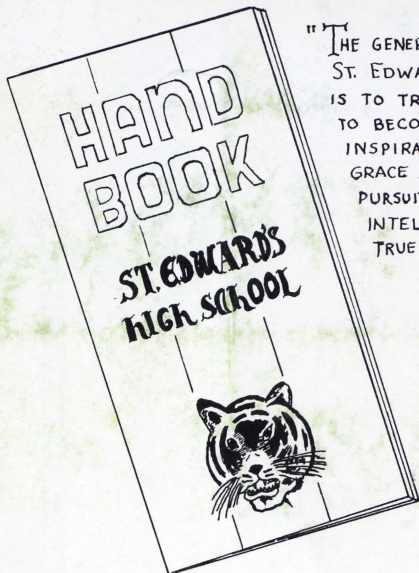 HAND
BOOK
ST. EDWARD'S
HIGH SCHOOL
"THE GENE
ST. EDWA
IS TO TR
TO BECO
INSPIRA
GRACE
PURSUI
INTEL
TRUE